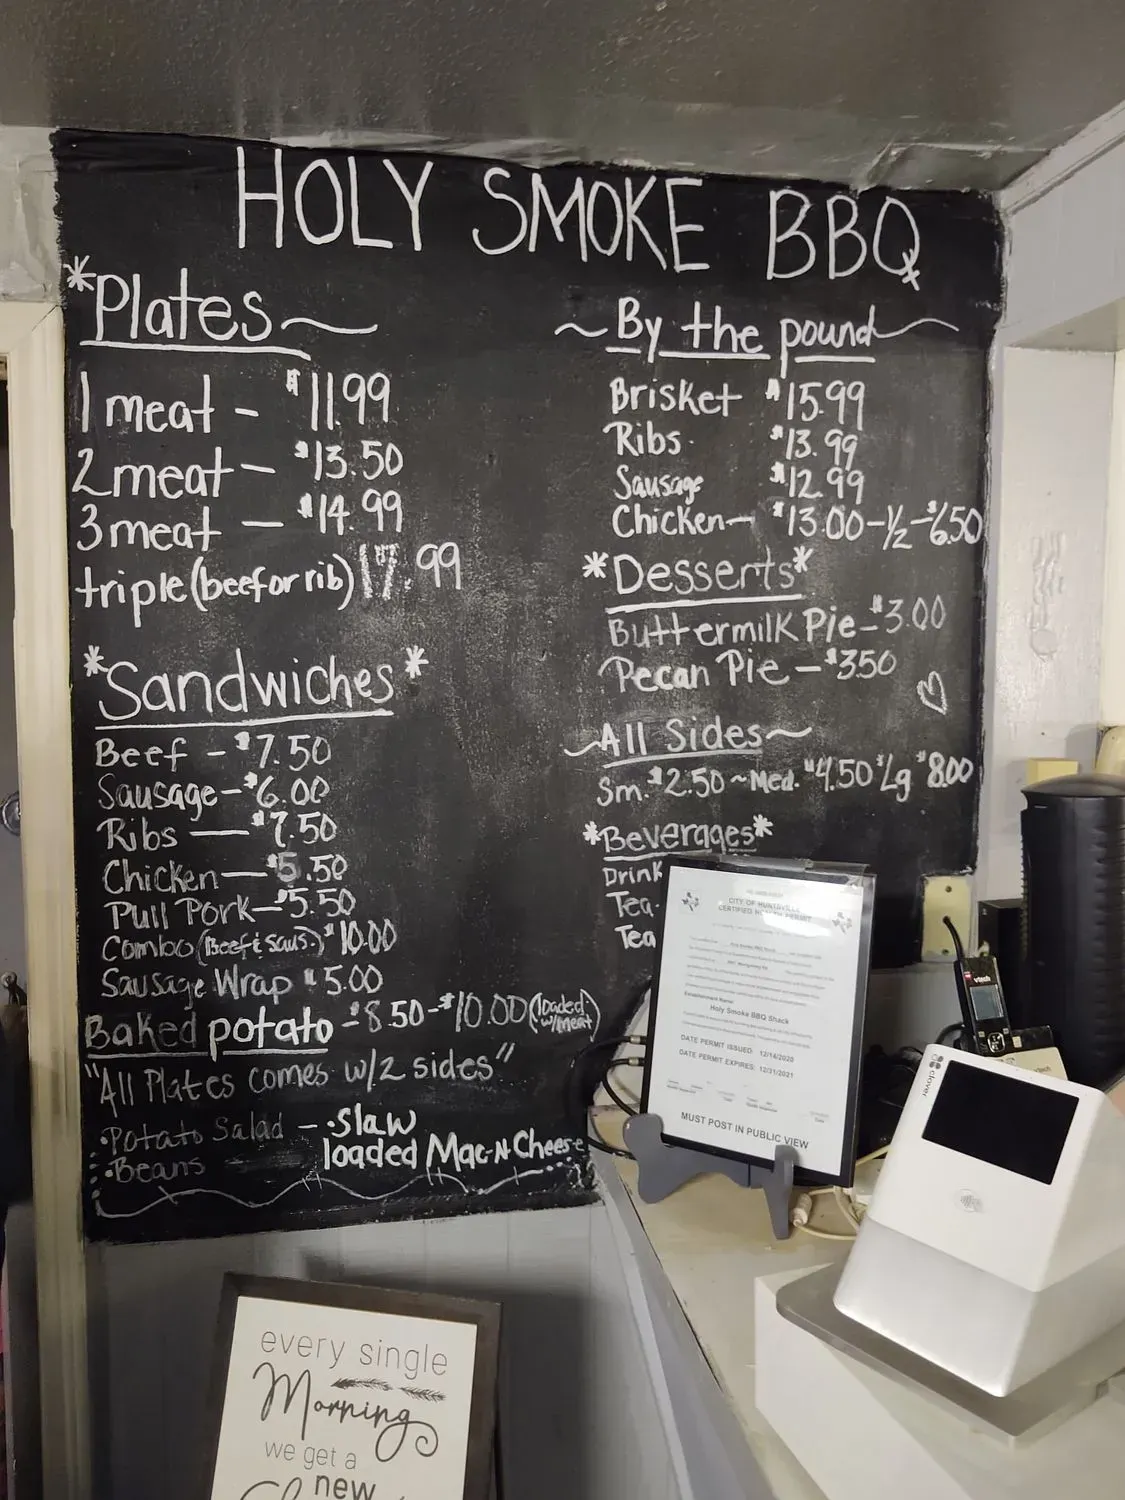 HOLY SMOKE BBQ
*Plates
1 meat - $11.99
2 meat - $13.50
3 meat - $14.99
triple (beef or rib) 17.99
*Sandwiches*
Beef - $7.50
Sausage - $6.00
Ribs - $7.50
Chicken - $5.50
Pull Pork - $5.50
Combo (Beef & Saus.) $10.00
Sausage Wrap $5.00
Baked potato - $8.50 - $10.00 (loaded w/meat)
"All Plates comes w/2 sides"
• Potato Salad - • Slaw
• Beans loaded Mac-N-Cheese
~ By the pound ~
Brisket $15.99
Ribs $13.99
Sausage $12.99
Chicken - $13.00 - 1/2 - $6.50
*Desserts*
Buttermilk Pie - $3.00
Pecan Pie - $3.50
~ All Sides ~
Sm. $2.50 ~ Med. $4.50 $Lg $8.00
*Beverages*
Drink
Tea
Tea
CITY OF HUNTSVILLE
CERTIFIED HEALTH PERMIT
Establishment Name:
Holy Smoke BBQ Shack
DATE PERMIT ISSUED: 12/14/2020
DATE PERMIT EXPIRES: 12/31/2021
MUST POST IN PUBLIC VIEW
vtech
vtech
clover
every single
Morning
we get a
new